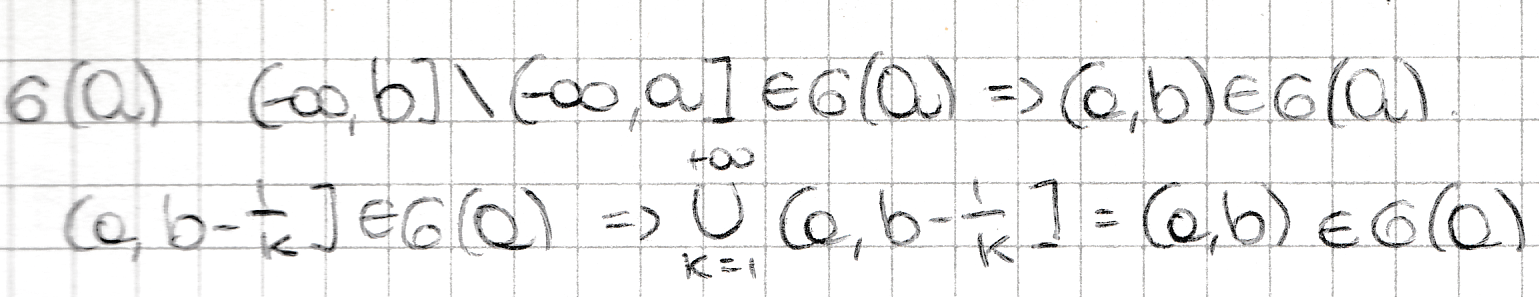 σ(a) (-∞, b] \ (-∞, a] ∈ σ(a) => (a, b) ∈ σ(a).
(a, b - 1/k] ∈ σ(a) => ⋃_{k=1}^{+∞} (a, b - 1/k] = (a, b) ∈ σ(a)